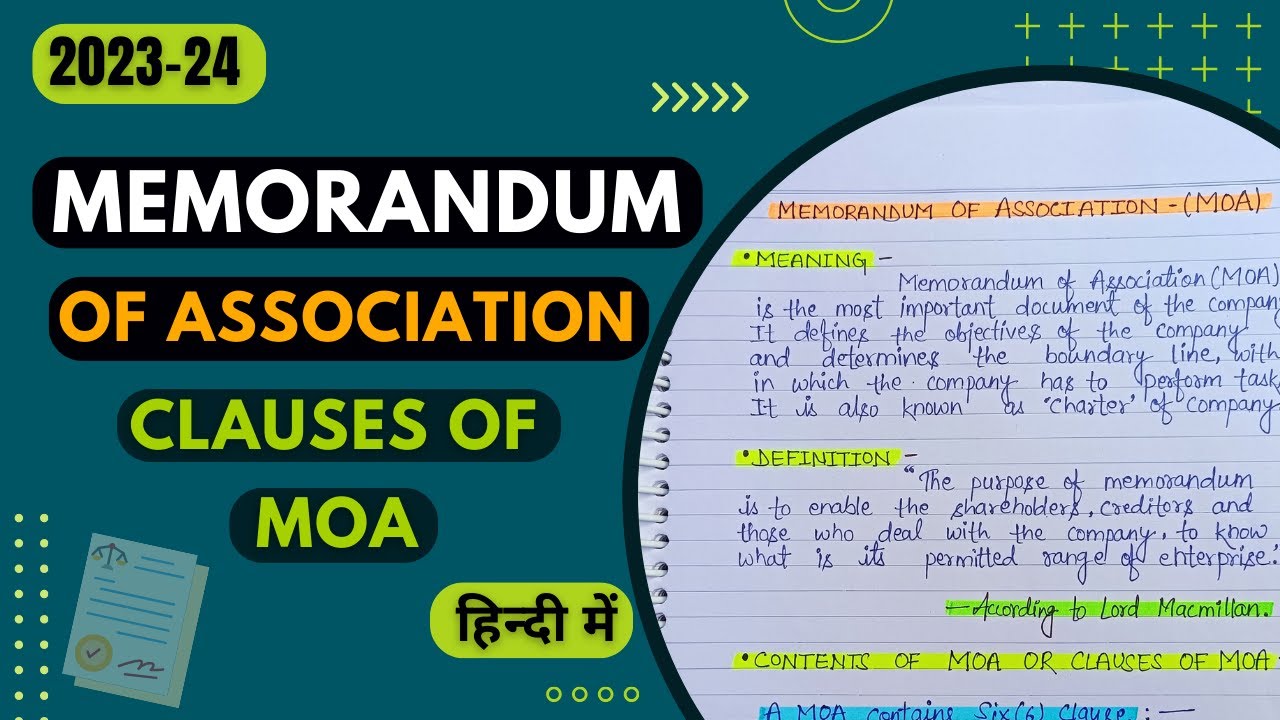 2023-24
MEMORANDUM
OF ASSOCIATION
CLAUSES OF
MOA
हिन्दी में
MEMORANDUM OF ASSOCIATION - (MOA)
• MEANING -
Memorandum of Association (MOA)
is the most important document of the compan
It defines the objectives of the company
and determines the boundary line, with
in which the company has to perform task
It is also known as 'Charter' of Company
• DEFINITION -
"The purpose of memorandum
is to enable the shareholders, creditors and
those who deal with the company, to know
what is its permitted range of enterprise."
- According to Lord Macmillan.
• CONTENTS OF MOA OR CLAUSES OF MOA -
A MOA contains Six(6) Clause : -